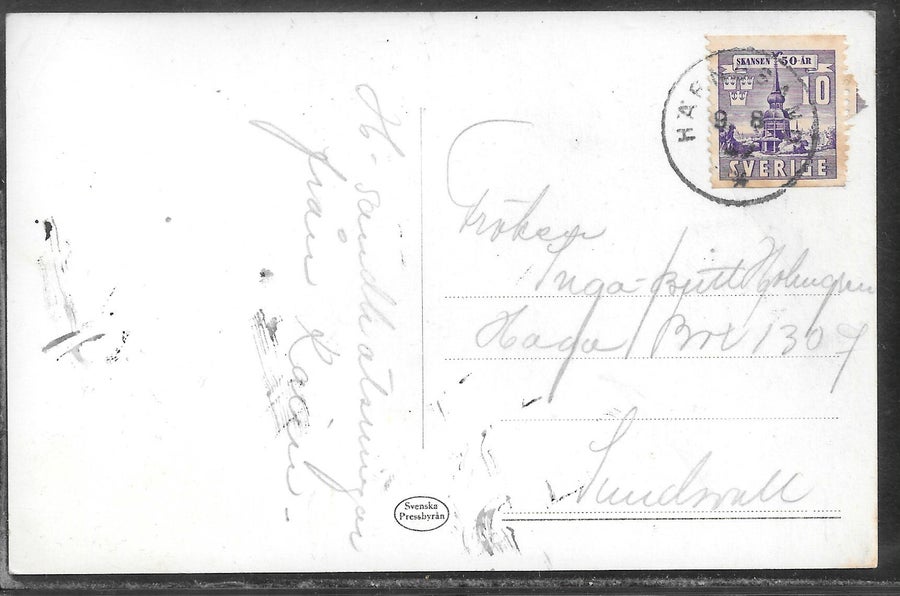 H-sandhälsningar
från Karin.
SKANSEN 50 ÅR
10
SVERIGE
9 8
Fröken
Inga-Britt Holmgren
Haga Box 1307
Sundsvall
Svenska
Pressbyrån